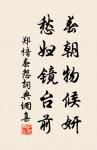 春朝物候妍
愁妇镜台前
郑愔春怨词典网集